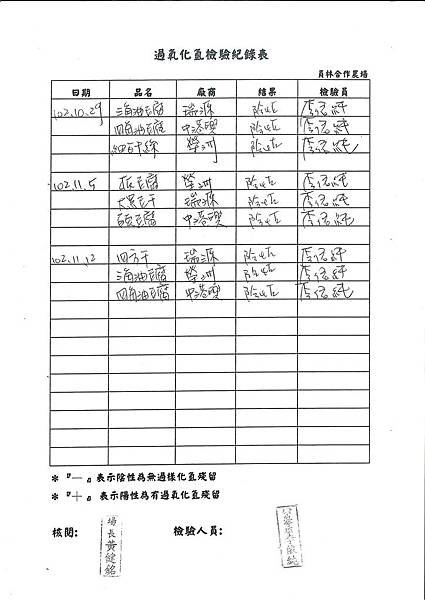 過氧化氫檢驗紀錄表
員林合作農場
日期 品名 廠商 結果 檢驗員
102.10.29 三角油豆腐 瑞源 陰性 李信純
四角油豆腐 中港興 陰性 李信純
細豆干絲 榮洲 陰性 李信純
102.11.5 板豆腐 榮洲 陰性 李信純
大黑豆干 瑞源 陰性 李信純
豆腐 中港興 陰性 李信純
102.11.12 四方干 瑞源 陰性 李信純
三角油豆腐 榮洲 陰性 李信純
四角油豆腐 中港興 陰性 李信純
* 『一』表示陰性為無過樣化氫殘留
* 『+』表示陽性為有過氧化氫殘留
核閱: 場長黃健銘 檢驗人員: